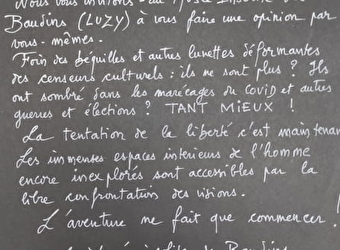 Nous vous invitons au Musée
Baudins (LUZY) à vous faire une opinion par
vous-mêmes.
Foin des béquilles et autres lunettes déformantes
des censeurs culturels : ils ne sont plus ? Ils
ont sombré dans les marécages du COVID et autres
guerres et élections ? TANT MIEUX !
La tentation de la liberté c'est maintenan
Les immenses espaces intérieurs de l'homme
encore inexplorés sont accessibles par la
libre confrontation des visions.
L'aventure ne fait que commencer !